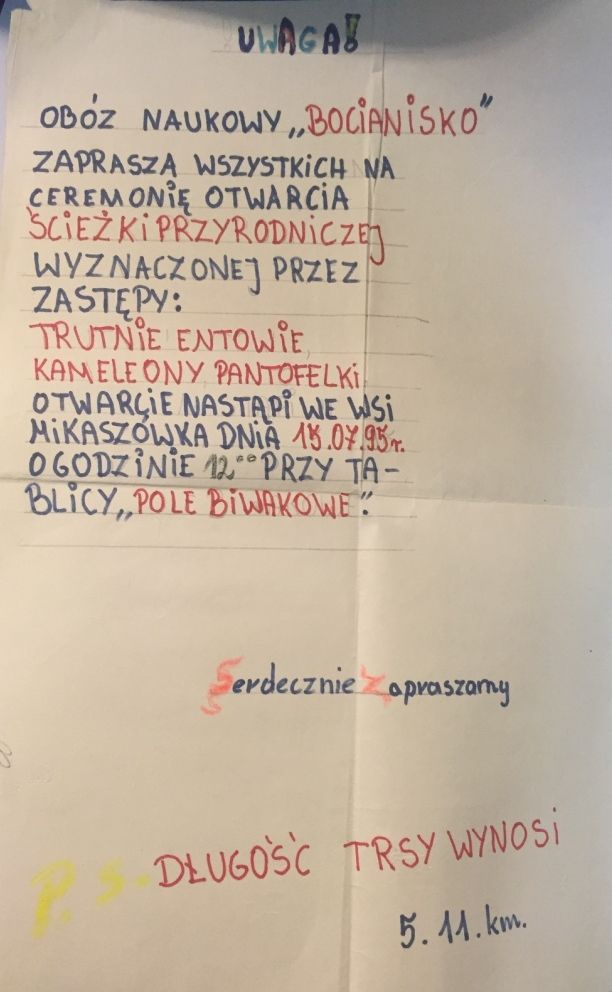 UWAGA!
OBÓZ NAUKOWY „BOCIANISKO"
ZAPRASZA WSZYSTKICH NA
CEREMONIĘ OTWARCIA
ŚCIEŻKI PRZYRODNICZEJ
WYZNACZONEJ PRZEZ
ZASTĘPY:
TRUTNIE ENTOWIE
KAMELEONY PANTOFELKI
OTWARCIE NASTĄPI WE WSI
MIKASZÓWKA DNIA 15.07.95r.
O GODZINIE 12⁰⁰ PRZY TA-
BLICY „POLE BIWAKOWE".
Serdecznie Zapraszamy
P.S. DŁUGOŚĆ TRSY WYNOSI
5.11.km.